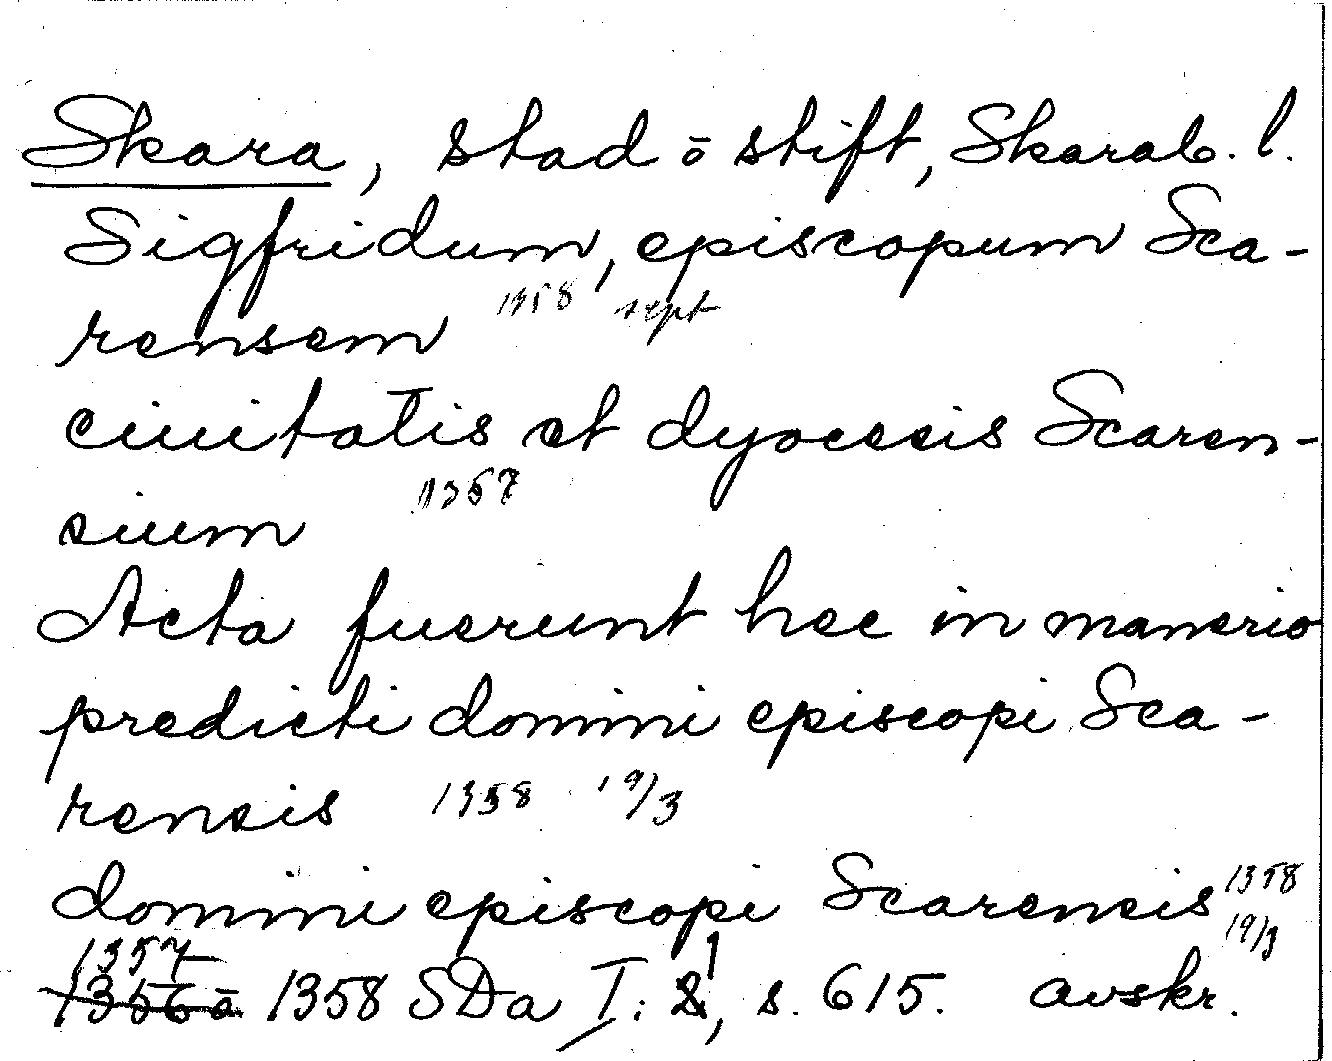 Skara, stad o stift, Skarab. l.
Sigfridum, episcopum Sca-
rensem 1358 sept
ciuitatis et dyocesis Scaren-
sium 1357
Acta fuerunt hec in manerio
predicti domini episcopi Sca-
rensis 1358 19/3
domini episcopi Scarensis 1358
19/3
1357
1356 o 1358 SDa I: 1, s. 615. avskr.